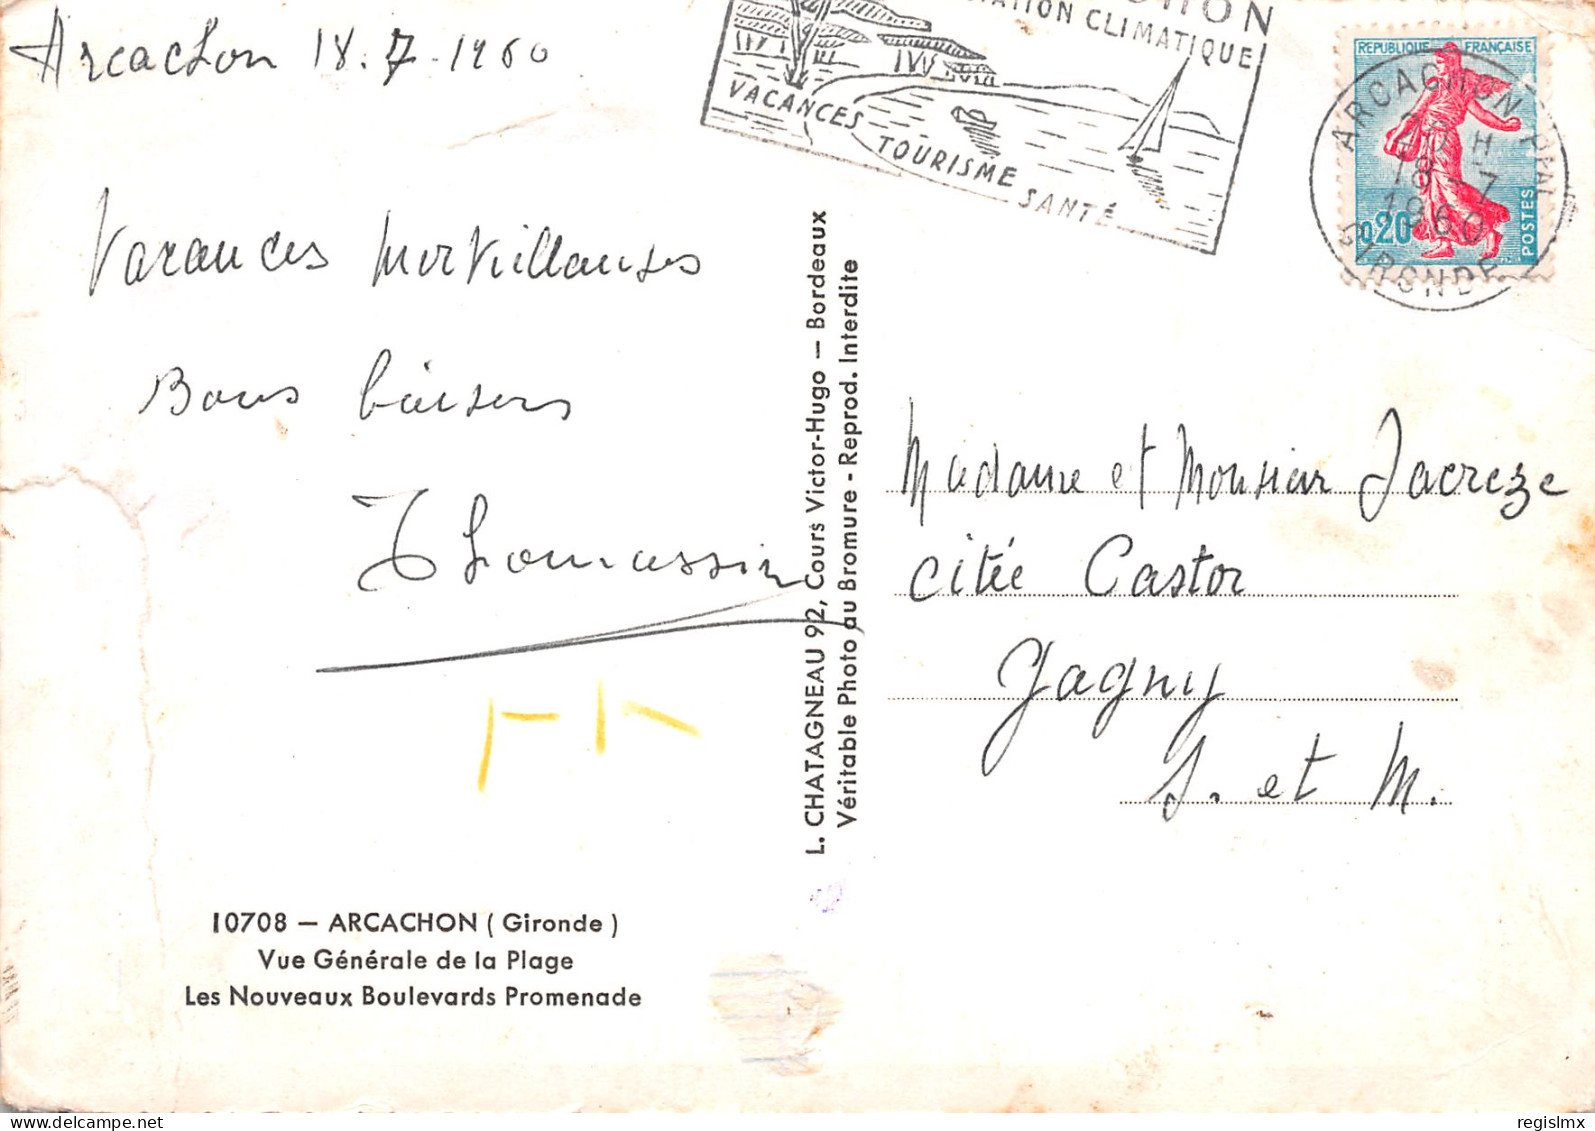 Arcachon 18.7.1960
Vacances merveillauses
Bons baisers
Thomassin
10708 — ARCACHON ( Gironde )
Vue Générale de la Plage
Les Nouveaux Boulevards Promenade
L. CHATAGNEAU 92, Cours Victor-Hugo — Bordeaux
Véritable Photo au Bromure - Reprod. Interdite
CLIMATIQUE
VACANCES TOURISME SANTÉ
REPUBLIQUE FRANÇAISE
0,20
POSTES
ARCACHON PPAL
20 H
18 - 7
1960
GIRONDE
Madame et Monsieur Jacreze
citée Castor
Gagny
S. et M.
regislmx